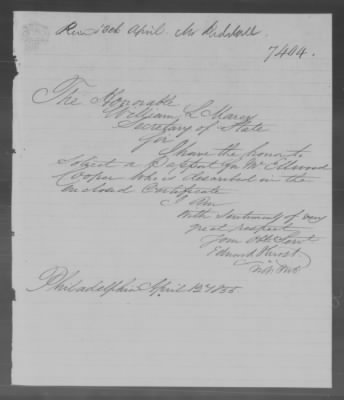 April. Mr
7404.
The Honorable
William L Marcy
Secretary of State
Sir
I have the honor to
solicit a passport for Mr Ellwood
Cooper who is described in the
enclosed Certificate
I Am
With Sentiments of very
great respect
Your Obt Servt
Edward Hurst
Philadelphia April 12 1855